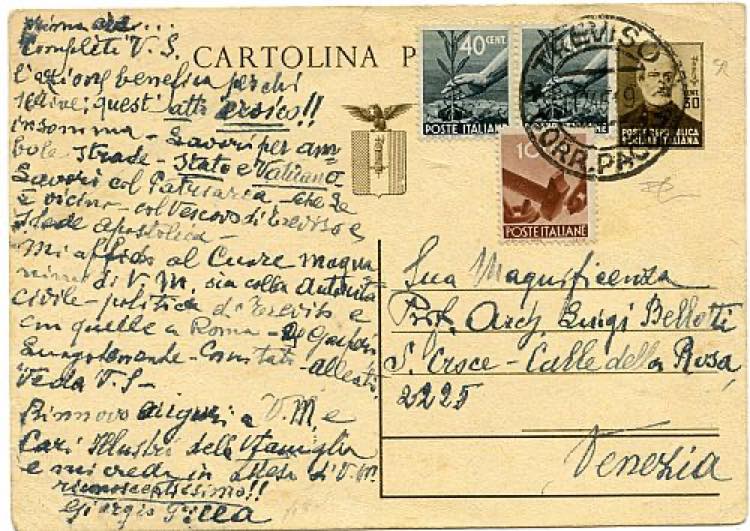 Completi V. S.
l'azione benefica perchi
scrive: quest'atto eroico!!
insomma - Lavori per am
bole strade - Stato e Vaticano
Lavori col Patriarca - che Le
è vicino - col Vescovo di Treviso e
Sede Apostolica -
mi affido al Cuore magna
nimo di V. M. sia colle Autorità
civile - politica di Treviso e
con quelle a Roma - De Gasperi
Luogotenente - Comitati - alleati
Veda V. S -
Rinnovo auguri a V. M. e
Cari Illustri della famiglia
e mi creda in attesa di V. M.
riconoscentissimo!!
Giorgio
CARTOLINA P
40 CENT.
POSTE ITALIANE
POSTE ITALIANE
10
POSTE ITALIANE
TREVISO
CORR. PAC
CENT 50
POSTE REPUBBLICA
SOCIALE ITALIANA
Sua Magnificenza
Prof. Arch Luigi Bellotti
S. Croce - Calle della Rosa
2225
Venezia